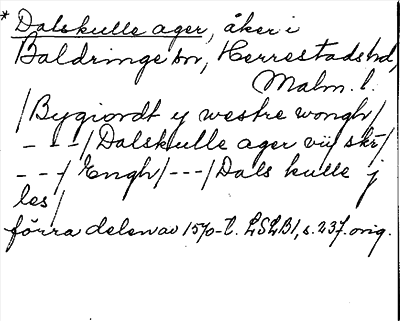 * Dalskulle ager, åker i
Baldringe sn, Herrestads hd,
Malm. l.
/Bygiordt y westre wongh/
- - -/Dalskulle ager vij skr/
- - -/Engh/---/Dals kulle j
les/
förra delen av 1570-t. LSLB1, s. 237. orig.